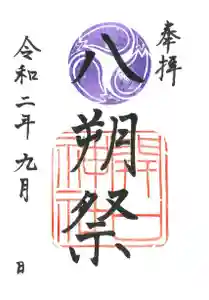 奉拝
八朔祭
令和二年九月
日